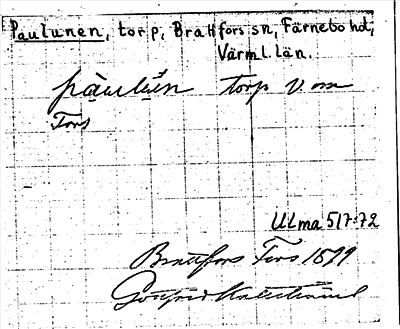 Paulunen, torp, Brattfors sn, Färnebo hd,
Värml. län.
torp v om
Fors
Ulma 517:72
Brattfors Fors 1899
Gottfrid Kallstenius